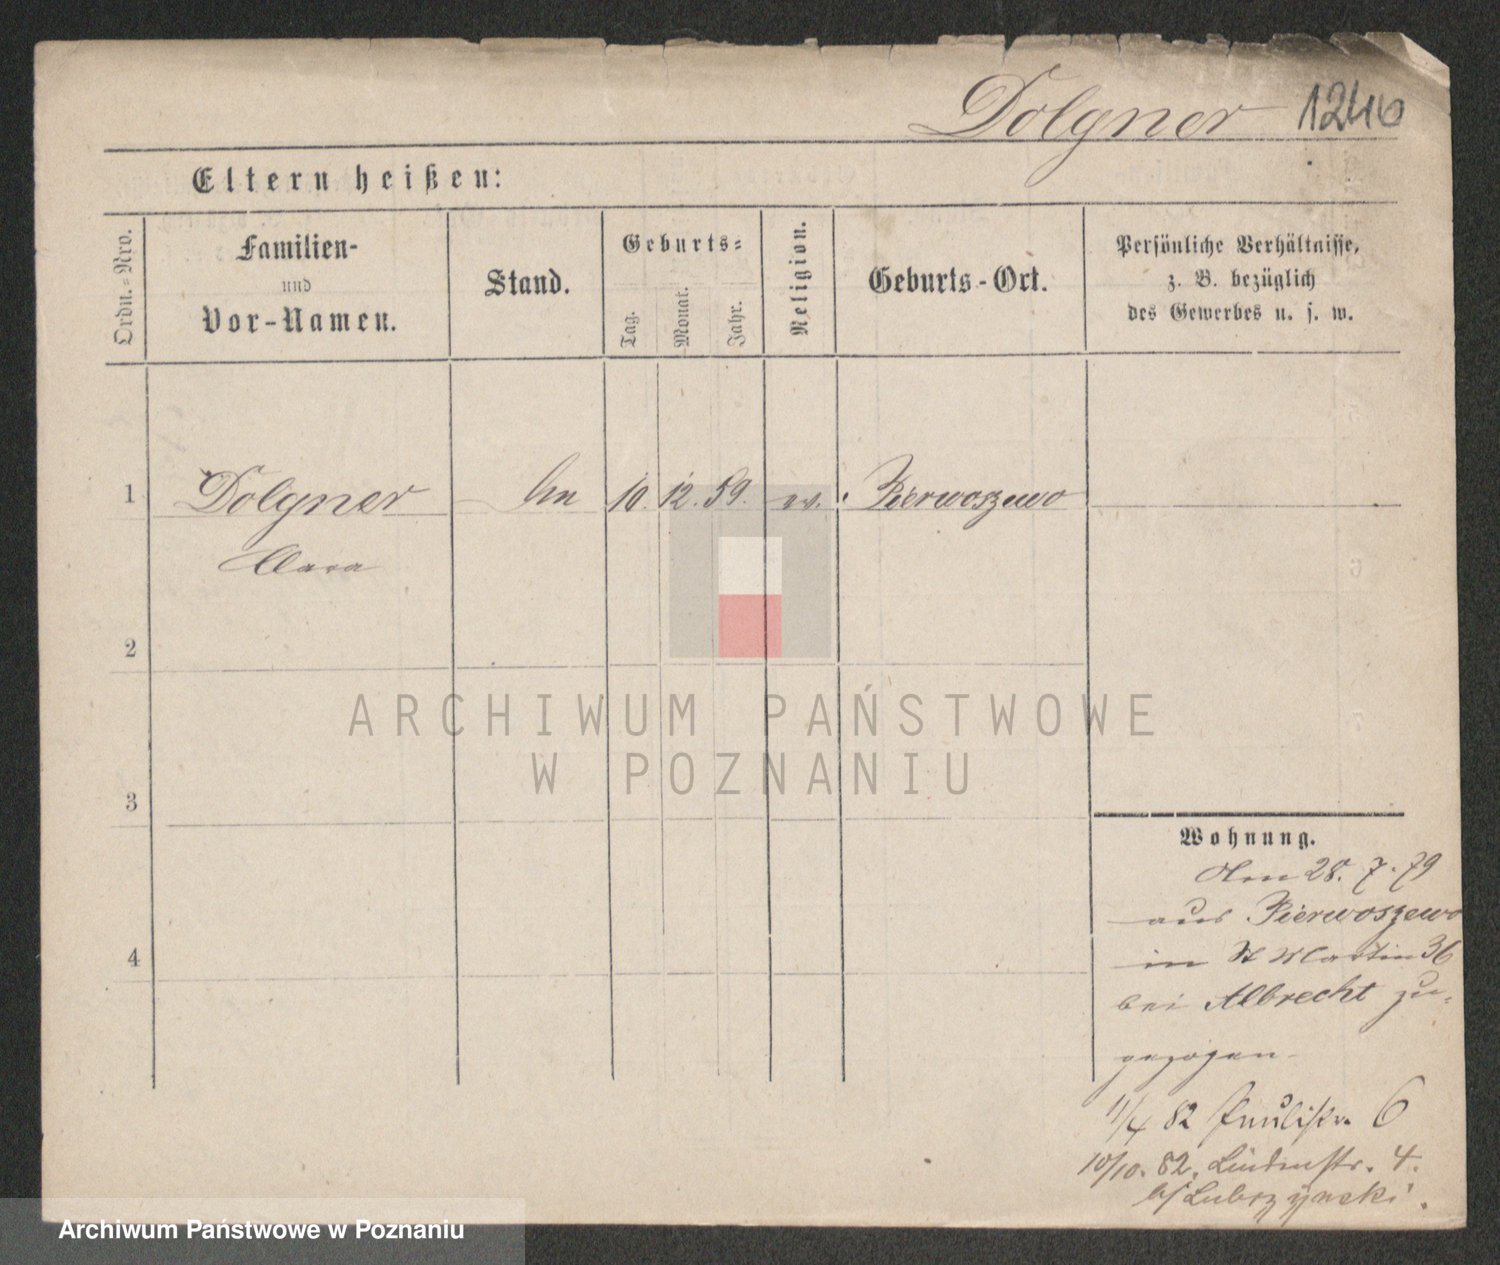 Dolgner 1246
Eltern heißen:
Ordn.=Nro.
Familien-
und
Vor-Namen.
Stand.
Geburts=
Tag.
Monat.
Jahr.
Religion.
Geburts-Ort.
Persönliche Verhältnisse,
z. B. bezüglich
des Gewerbes u. s. w.
1 Dolgner 10. 12. 59. ev. Pierwoszewo
Clara
2
3
4
Wohnung.
Am 28. 7. 79
aus Pierwoszewo
in St Martin 36
bei Albrecht zu=
gezogen
1/4 82 Paulistr. 6
10/10. 82. Lindenstr. 4.
b/ Lubrzynski.
ARCHIWUM PAŃSTWOWE
W POZNANIU
Archiwum Państwowe w Poznaniu